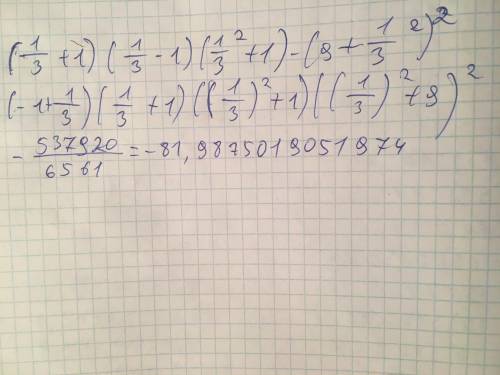 (1/3 + 1) (1/3 - 1) (1/3² + 1) - (9 + 1/3²)²
(-1 + 1/3) (1/3 + 1) ((1/3)² + 1) ((1/3)² + 9)²
- 537920/6561 = -81,9875019051974